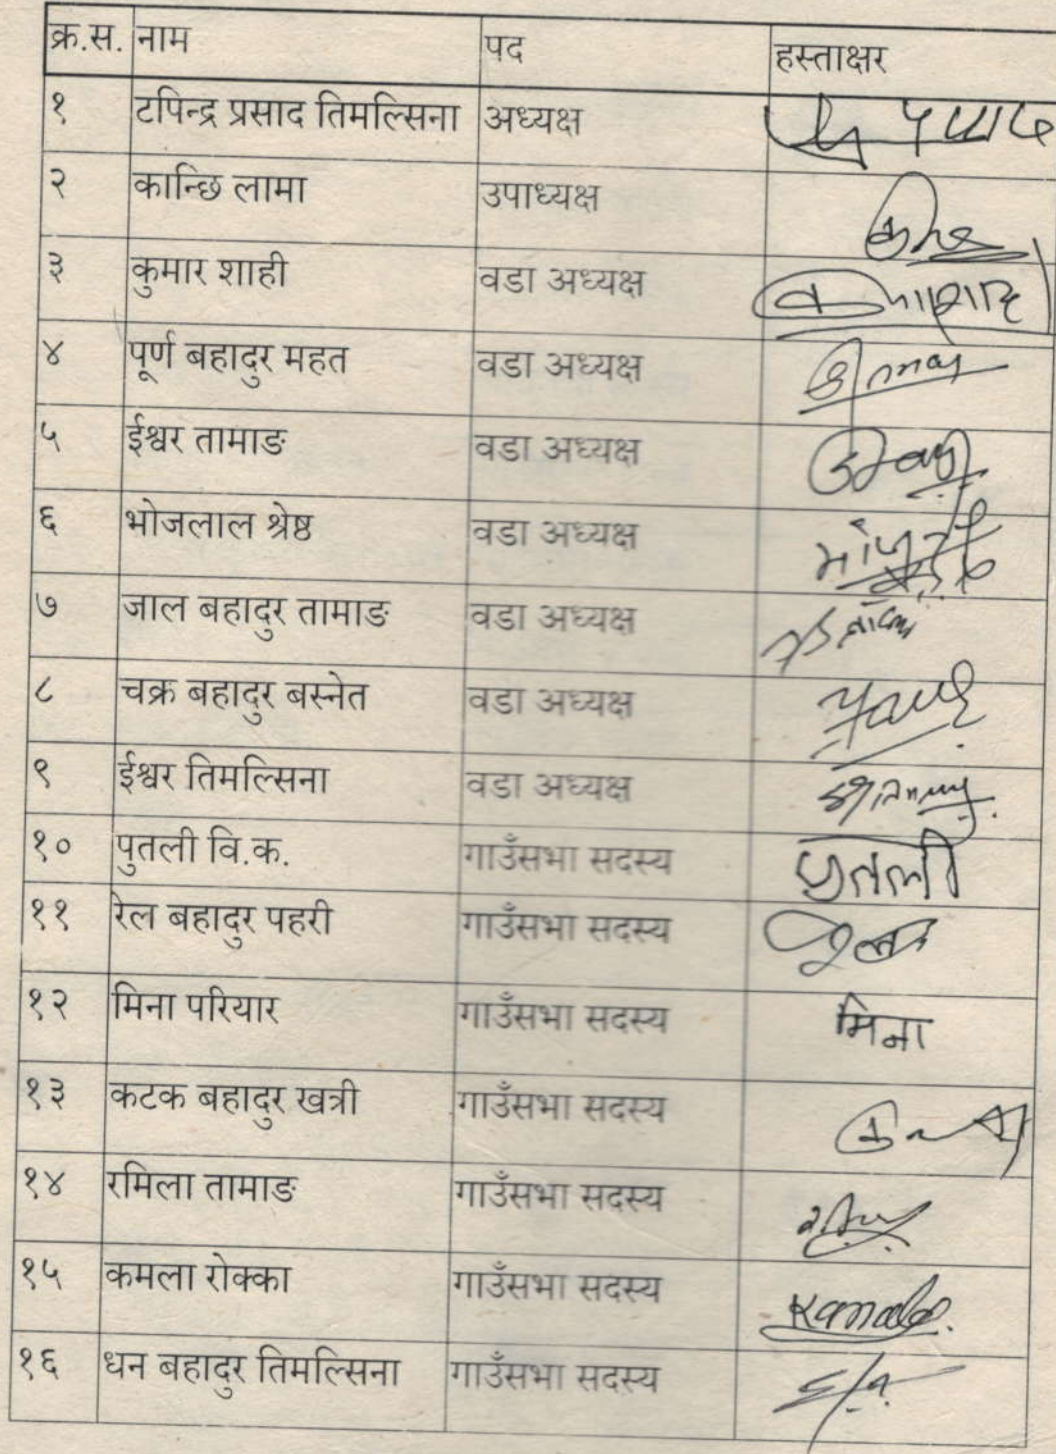 क्र.स. नाम पद हस्ताक्षर
१ टपिन्द्र प्रसाद तिमल्सिना अध्यक्ष
२ कान्छि लामा उपाध्यक्ष
३ कुमार शाही वडा अध्यक्ष
४ पूर्ण बहादुर महत वडा अध्यक्ष
५ ईश्वर तामाङ वडा अध्यक्ष
६ भोजलाल श्रेष्ठ वडा अध्यक्ष
७ जाल बहादुर तामाङ वडा अध्यक्ष
८ चक्र बहादुर बस्नेत वडा अध्यक्ष
९ ईश्वर तिमल्सिना वडा अध्यक्ष
१० पुतली वि.क. गाउँसभा सदस्य पुतली
११ रेल बहादुर पहरी गाउँसभा सदस्य
१२ मिना परियार गाउँसभा सदस्य मिना
१३ कटक बहादुर खत्री गाउँसभा सदस्य
१४ रमिला तामाङ गाउँसभा सदस्य
१५ कमला रोक्का गाउँसभा सदस्य
१६ धन बहादुर तिमल्सिना गाउँसभा सदस्य